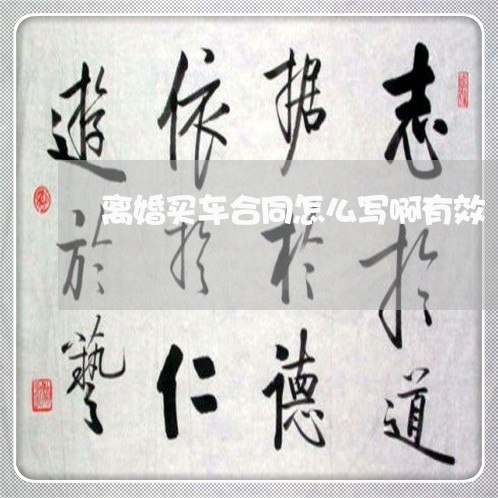 志於道
据於德
依於仁
遊於藝
离婚买车合同怎么写啊有效